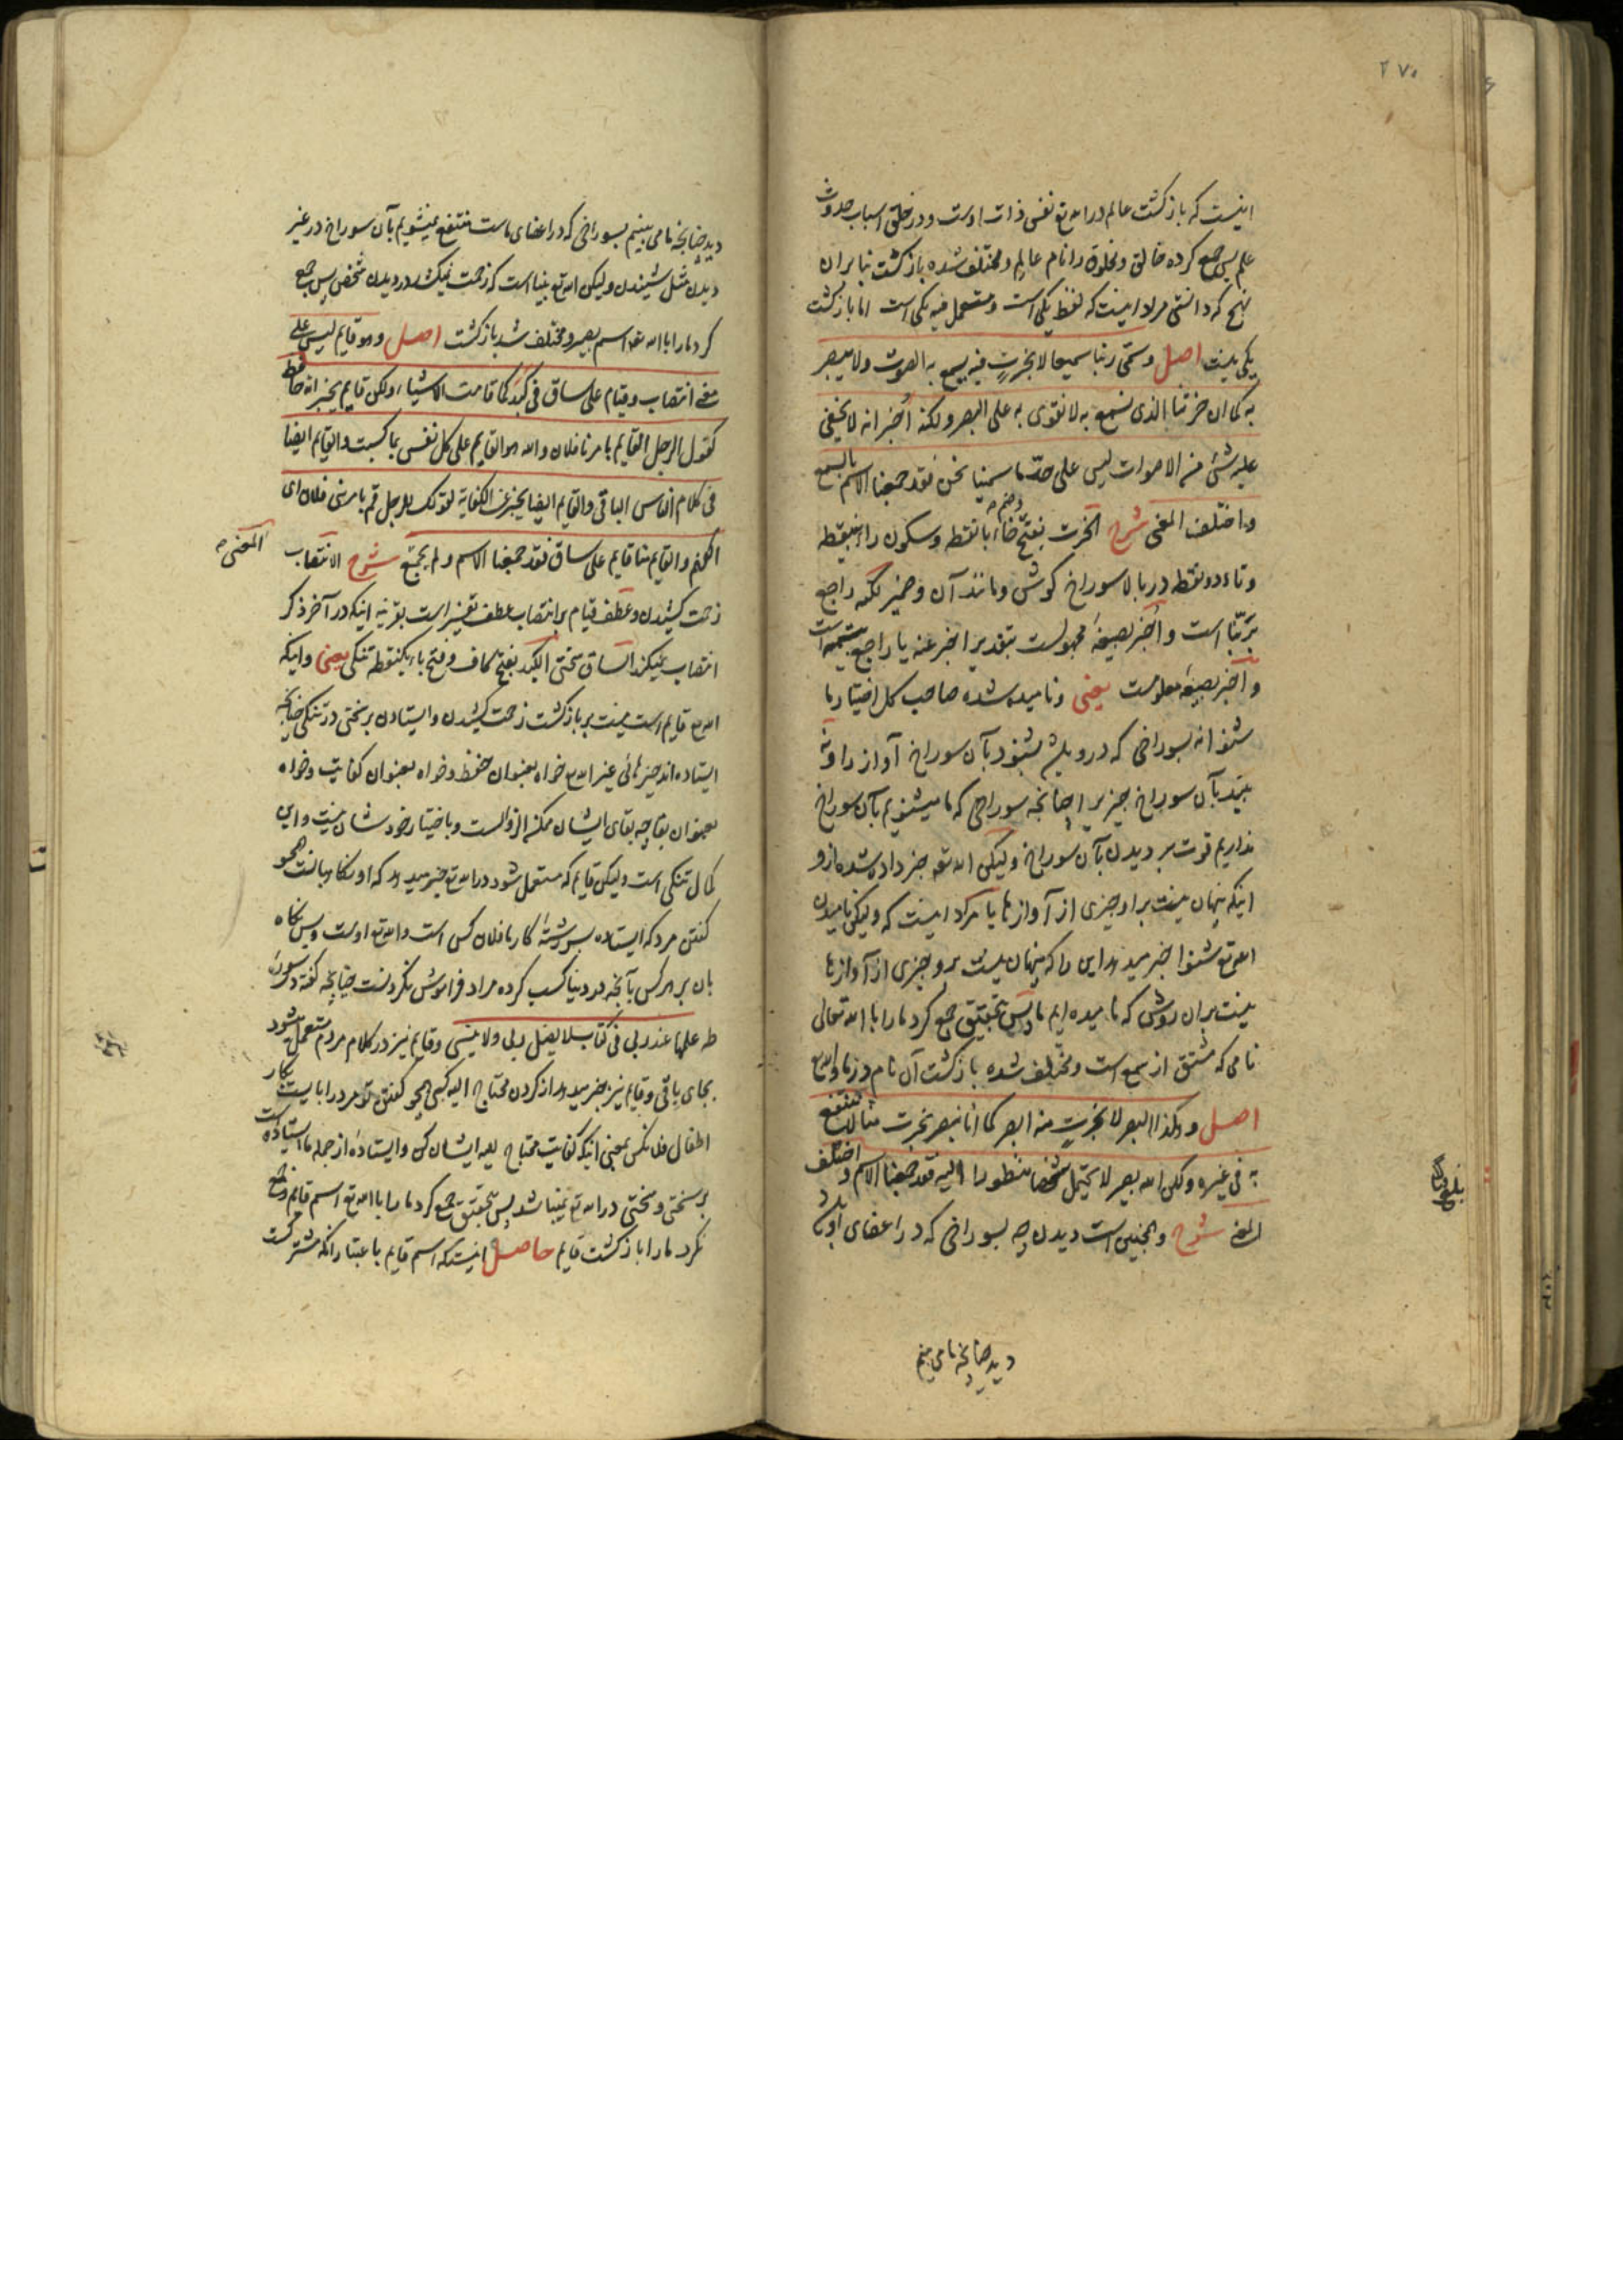 ۲۷۰
اینست که بازگشت عالم در الله تع نفس ذات اوست و در خلق اسباب حدوث
علم پس جمع کرده خالق و مخلوق را نام عالم و مختلف شده بازگشت بنابران
نهج که دانستی مراد اینست که لفظ یکی است و مستعمل فیه یکی است اما بازگشت
یکی نیست اصل وسمّی ربنا سمیعا لا بخرتٍ فیه یسمع به الصوت ولا یبصر
به کما ان خرتنا الذی نسمع به لا نقوی به علی البصر ولکنه اُخبر انه لا یخفی
علیه شئ من الاصوات لیس علی حدّ ما سمینا نحن فقد جمعنا الاسم بالسمع
واختلف المعنی شرح الخرت بفتح وضم خاء بانقطه وسکون راء بینقطه
وتاء دو نقطه در بالا سوراخ گوش و مانند آن وضمیر لکنه راجع
بربّنا است و اُخبر بصیغه مجهولست بتقدیر اخبر عنه یا راجع بتسمیه است
و اخبر بصیغه معلومست یعنی ونامیده شده صاحب کل اختیار ما
شنوا نه بسوراخی که در و باشد بشنود بآن سوراخ آواز را و نه
بیند بآن سوراخ چیزیرا چنانچه سوراخی که ما میشنویم بآن سوراخ
نداریم قوت بر دیدن بآن سوراخ ولیکن الله تع خبر داده شده ازو
اینکه پنهان نیست براو چیزی از آوازها یا مراد اینست که ولیکن نامیدن
الله تع شنوا خبر میدهد این را که پنهان نیست برو چیزی از آوازها
نیست بران روش که نامیده ایم ما پس بتحقیق جمع کرد ما را با الله تعالی
نامی که مشتق از سمع است و مختلف شده بازگشت آن نام در ما و الله تع
اصل وهکذا البصر لا بخرتٍ منه ابصر کما انا نبصر بخرت منا لا ننتفع
به فی غیره ولکن الله بصیر لا یحتمل شخصا منظورا الیه فقد جمعنا الاسم واختلف
المعنی شرح وهمچنین است دیدن چه بسوراخی که در اعضای او باشد
دید چنانچه ما می بینیم
دید چنانچه ما می بینیم بسوراخی که در اعضای ماست منتفع نمیشویم بآن سوراخ در غیر
دیدن مثل شنیدن ولیکن الله تع بینا است که زحمت نمیکشد در دیدن شخص پس جمع
کرد ما را با الله تع اسم بصیر و مختلف شد بازگشت اصل وهو قایم لیس علی
معنی انتصاب وقیام علی ساق فی کبد کما قامت الاشیاء ولکن قایم یخبر انه حافظ
کقول الرجل القایم بامرنا فلان والله هو القایم علی کل نفس بما کسبت والقایم ایضا
فی کلام الناس الباقی والقایم ایضا یخبر عن الکفایة کقولک للرجل قم بامر بنی فلان ای
اکفهم والقایم منا قایم علی ساق فقد جمعنا الاسم ولم یجتمع المعنی شرح الانتصاب
زحمت کشیدن وعطف قیام بر انتصاب عطف تفسیر است بقرینه اینکه در آخر ذکر
انتصاب نمیکند الساق سختی الکبد بفتح کاف وفتح باء یکنقطه تنگی یعنی واینکه
الله تع قایم است نیست بر بازگشت زحمت کشیدن وایستادن بر سختی در تنگی چنانچه
ایستاده اند چیزهائی غیر الله تع خواه بعنوان حفظ و خواه بعنوان کفایت و خواه
بعنوان بقا چه بقای ایشان ممکن الزوالست وباختیار خود شان نیست و این
کمال تنگی است ولیکن قایم که مستعمل شود در الله تع خبر میدهد که او نگاهبانست همچو
گفتن مرد که ایستاده بسر رشته کار ما فلان کس است والله تع اوست و بس نگاه
بان بر هرکس بآنچه در دنیا کسب کرده مراد فراموش نکردنست چنانچه گفته در سوره
طه علمها عند ربی فی کتاب لا یضل ربی ولا ینسی وقایم نیز در کلام مردم مستعمل میشود
بجای باقی وقایم نیز خبر میدهد از کردن محتاج الیه کسی همچو گفتن تو مرد را بایست بکار
اطفال فلانکس بمعنی اینکه کفایت محتاج الیه ایشان کن وایستاده از جمله ما ایستاده است
بر سختی و سختی در الله تع نمیباشد پس بتحقیق جمع کرد ما را با الله تع اسم قایم وجمع
نکرد ما را بازگشت قایم حاصل اینستکه اسم قایم باعتبار آنکه مشترکست